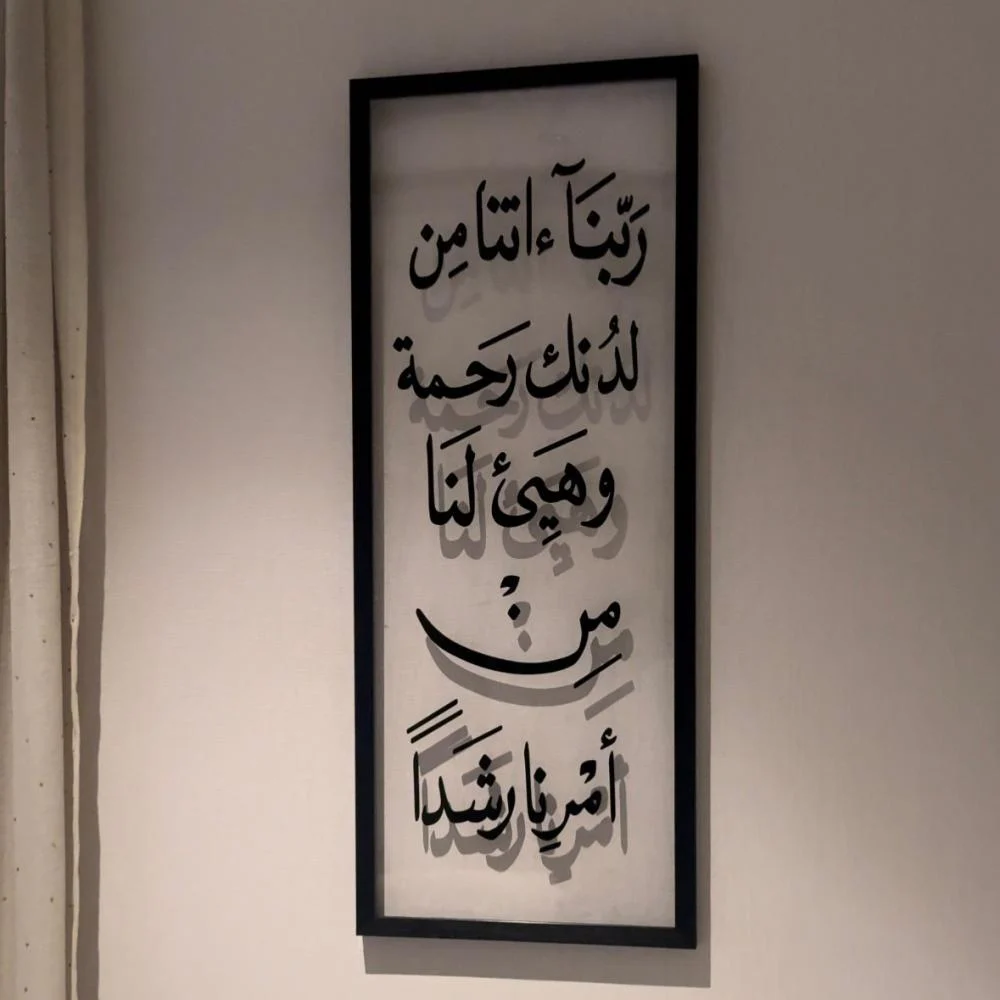 رَبّنَآ ءاتنا مِن
لدُنك رَحَمة
وهَيِئ لَنا
مِنْ
أمْرِنِا رشَداً